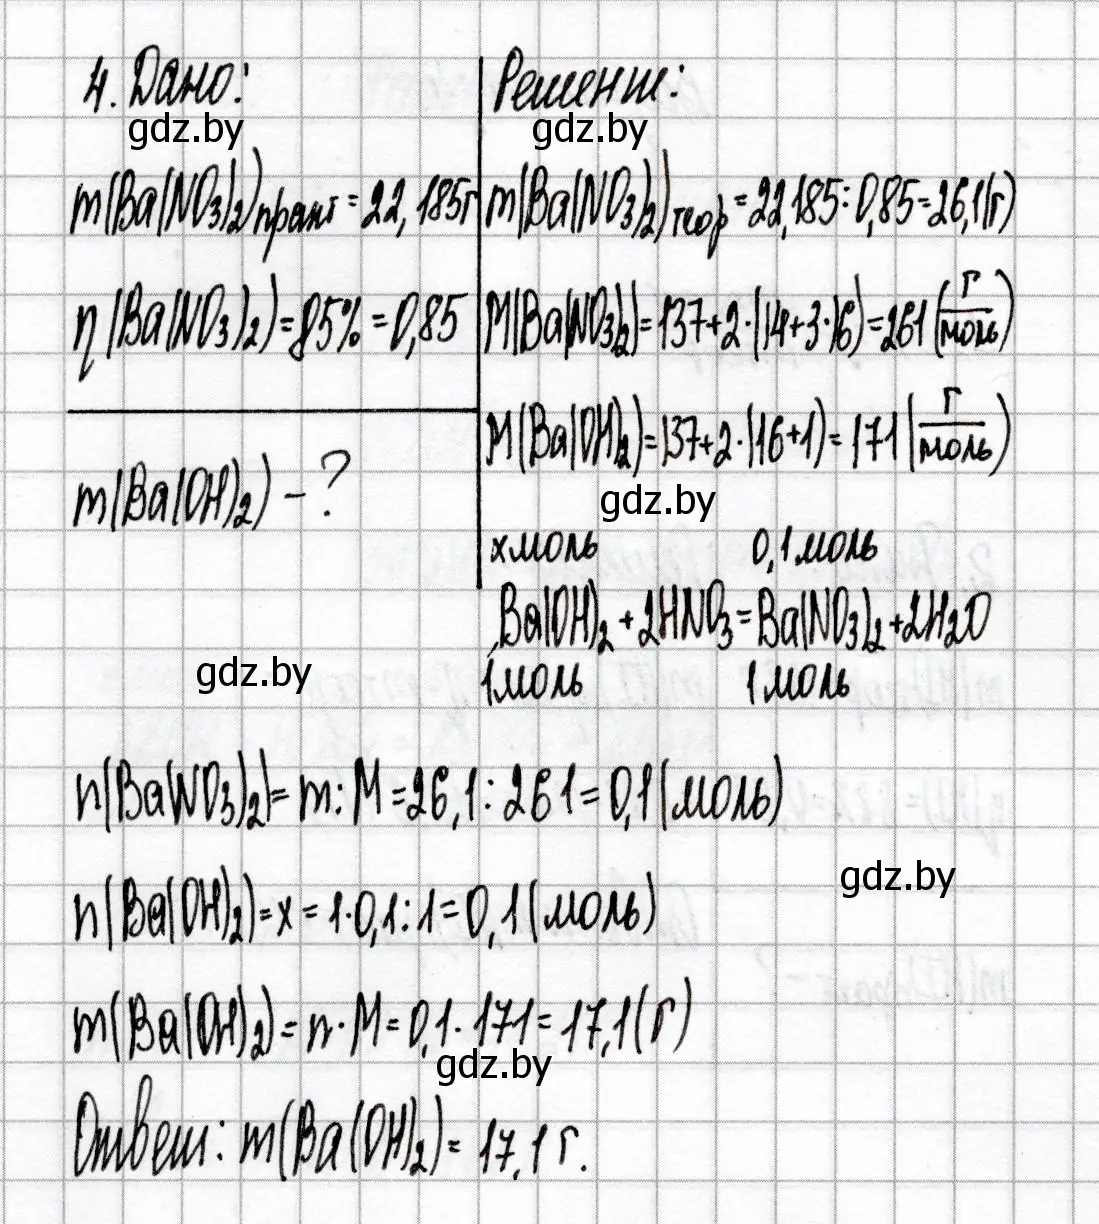 4. Дано:
gdz.by
m(Ba(NO3)2)практ = 22,185г
η(Ba(NO3)2) = 85% = 0,85
m(Ba(OH)2) – ?
Решение:
gdz.by
m(Ba(NO3)2)теор = 22,185 : 0,85 = 26,1(г)
M(Ba(NO3)2) = 137+2·(14+3·16) = 261 (г/моль)
M(Ba(OH)2) = 137+2·(16+1) = 171 (г/моль)
gdz.by
x моль 0,1 моль
Ba(OH)2 + 2HNO3 = Ba(NO3)2 + 2H2O
1 моль 1 моль
gdz.by
n(Ba(NO3)2) = m : M = 26,1 : 261 = 0,1 (моль)
gdz.by
n(Ba(OH)2) = x = 1·0,1 : 1 = 0,1 (моль)
m(Ba(OH)2) = n · M = 0,1 · 171 = 17,1 (г)
gdz.by
Ответ: m(Ba(OH)2) = 17,1 г.